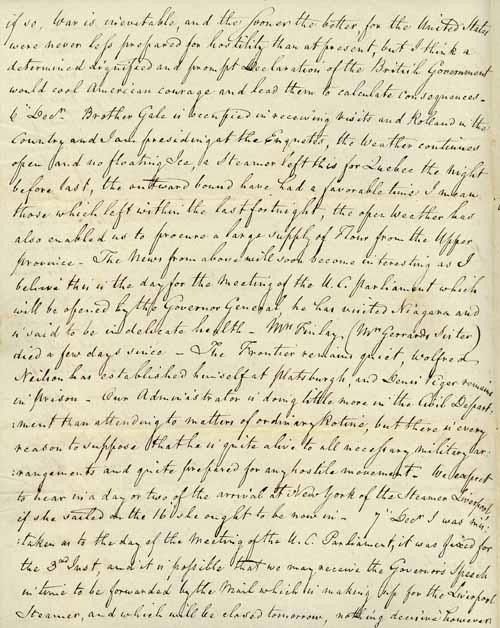 if so, War is inevitable, and the sooner the better, for the United States
were never less prepared for hostility than at present, but I think a
determined dignified and prompt Declaration of the British Government
would cool American courage and lead them to calculate consequences –
6" Decr. Brother Gale is occupied in receiving visits and Rolland in the
Country and I am presiding at the Enquetes, the Weather continues
open and no floating Ice, a Steamer left this for Quebec the night
before last, the outward bound have had a favorable time I mean
those which left within the last fortnight, the open Weather has
also enabled us to procure a large supply of Flour from the Upper
province – The News from above will soon become interesting as I
believe this is the day for the Meeting of the U. C. Parliament which
will be opened by the Governor General, he has visited Niagara and
is said to be in delicate health – Mrs Finlay, (Mrs Gerrards Sister)
died a few days since – The Frontier remains quiet, Wolfred
Neilson has established himself at Platsburgh, and Denis Viger remains
in prison – Our Administrator is doing little more in the Civil Depart
:ment than attending to matters of ordinary Rotine, but there is every
reason to suppose that he is quite alive to all necessary military ar-
:rangements and quite prepared for any hostile movement – We expect
to hear in a day or two of the arrival at New York of the Steamer Liverpool
if she sailed on the 16 she ought to be now in – 7" Decr I was mis:
:taken as to the day of the Meeting of the U. C. Parliament, it was fixed for
the 3rd Inst, and it is possible that we may receive the Governor's Speech
in time to be forwarded by the Mail which is making up for the Liverpool
Steamer, and which will be closed tomorrow, nothing decisive however